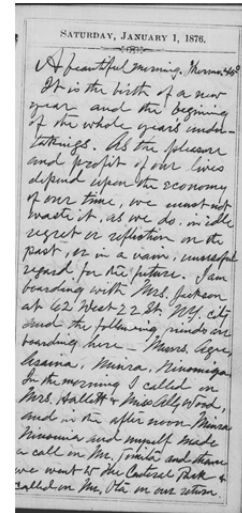 SATURDAY, JANUARY 1, 1876.
A beautiful morning. Thermo.
It is the birth of a new
year and the begining
of the whole years under-
takings. As the pleasure
and profit of our lives
depend upon the economy
of our time, we must not
waste it, as we do, in idle
regret or reflection on the
past, or in a vain,
regard for the future. I am
boarding with Mrs. Jackson
at 62 West 22 St. N.Y. City
and the following friends are
boarding here — Messrs. Agee,
Asaina, Miura, Ninomiya
In the morning I called on
Mrs. Hallett & Miss Wood,
and in the after noon Miura
Ninomia and myself made
a call on Mr. Tomita and thence
we went to the Central Park &
called on Mr. Ota on our return